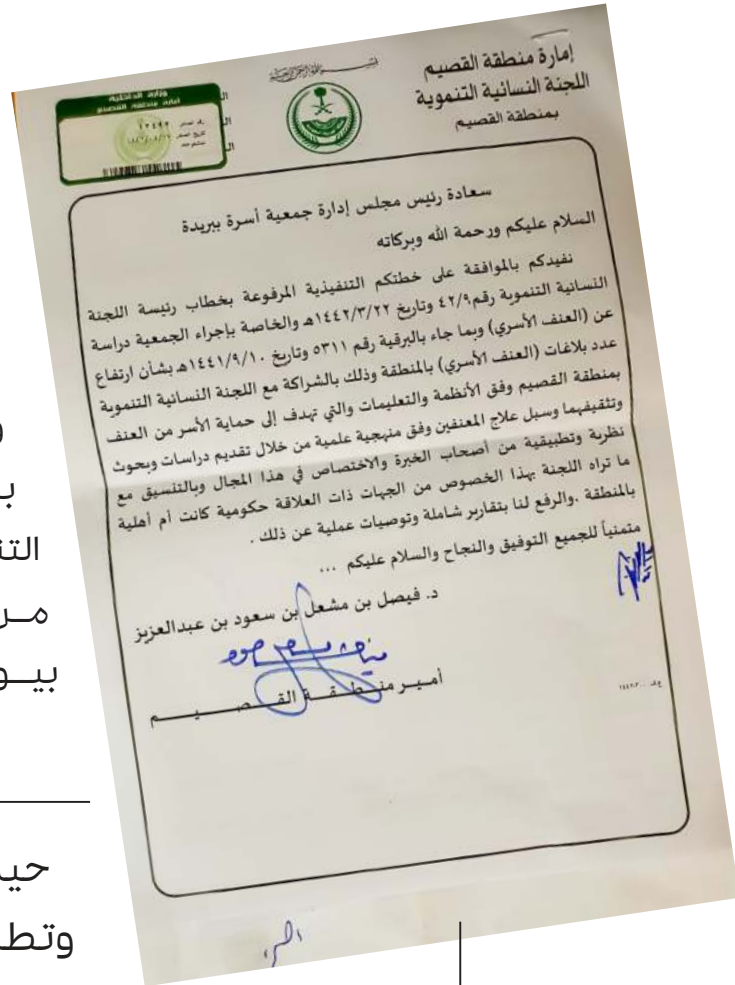 إمارة منطقة القصيم
اللجنة النسائية التنموية
بمنطقة القصيم
وزارة الداخلية
إمارة منطقة القصيم
سعادة رئيس مجلس إدارة جمعية أسرة ببريدة
السلام عليكم ورحمة الله وبركاته
نفيدكم بالموافقة على خطتكم التنفيذية المرفوعة بخطاب رئيسة اللجنة
النسائية التنموية رقم ٤٢/٩ وتاريخ ١٤٤٢/٣/٢٢هـ والخاصة بإجراء الجمعية دراسة
عن (العنف الأسري) وبما جاء بالبرقية رقم ٥٣١١ وتاريخ ١٤٤١/٩/١٠هـ بشأن ارتفاع
عدد بلاغات (العنف الأسري) بالمنطقة وذلك بالشراكة مع اللجنة النسائية التنموية
بمنطقة القصيم وفق الأنظمة والتعليمات والتي تهدف إلى حماية الأسر من العنف
وتثقيفهما وسبل علاج المعنفين وفق منهجية علمية من خلال تقديم دراسات وبحوث
نظرية وتطبيقية من أصحاب الخبرة والاختصاص في هذا المجال وبالتنسيق مع
ما تراه اللجنة بهذا الخصوص من الجهات ذات العلاقة حكومية كانت أم أهلية
بالمنطقة .والرفع لنا بتقارير شاملة وتوصيات عملية عن ذلك .
متمنياً للجميع التوفيق والنجاح والسلام عليكم ...
د. فيصل بن مشعل بن سعود بن عبدالعزيز
أمير منطقة القصيم
التن
مـر
بيـو
حيـ
وتط